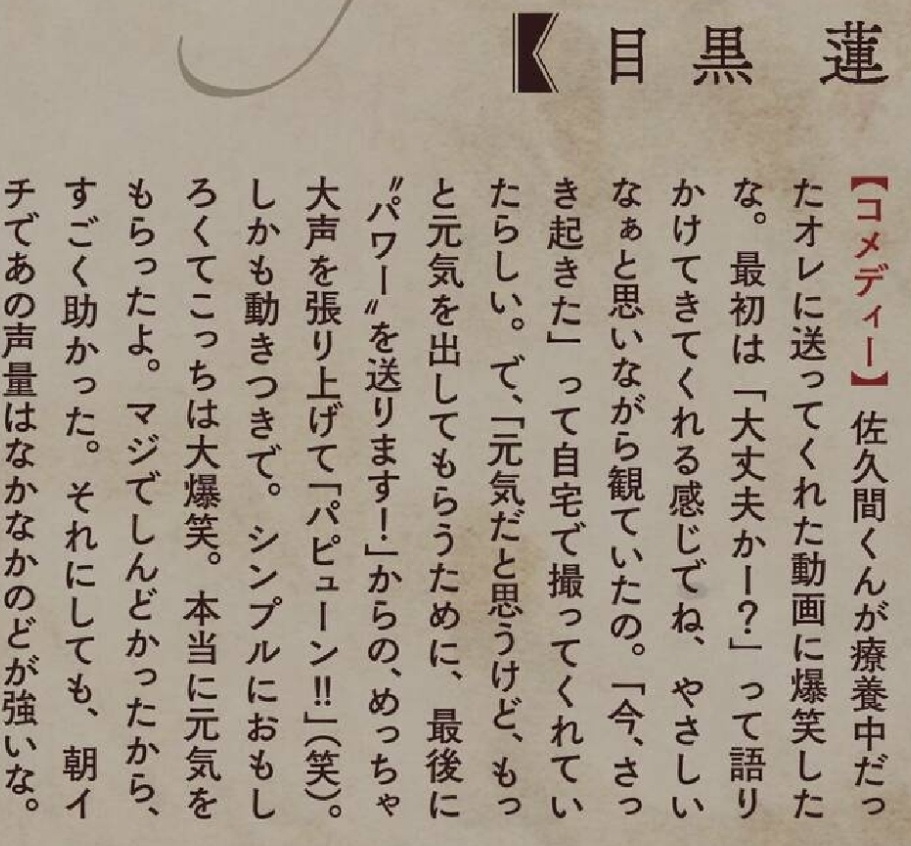 目黒 蓮
【コメディー】佐久間くんが療養中だっ
たオレに送ってくれた動画に爆笑した
な。最初は「大丈夫かー？」って語り
かけてきてくれる感じでね、やさしい
なぁと思いながら観ていたの。「今、さっ
き起きた」って自宅で撮ってくれてい
たらしい。で、「元気だと思うけど、もっ
と元気を出してもらうために、最後に
〝パワー〟を送ります！」からの、めっちゃ
大声を張り上げて「パピューン!!」（笑）。
しかも動きつきで。シンプルにおもし
ろくてこっちは大爆笑。本当に元気を
もらったよ。マジでしんどかったから、
すごく助かった。それにしても、朝イ
チであの声量はなかなかのどが強いな。